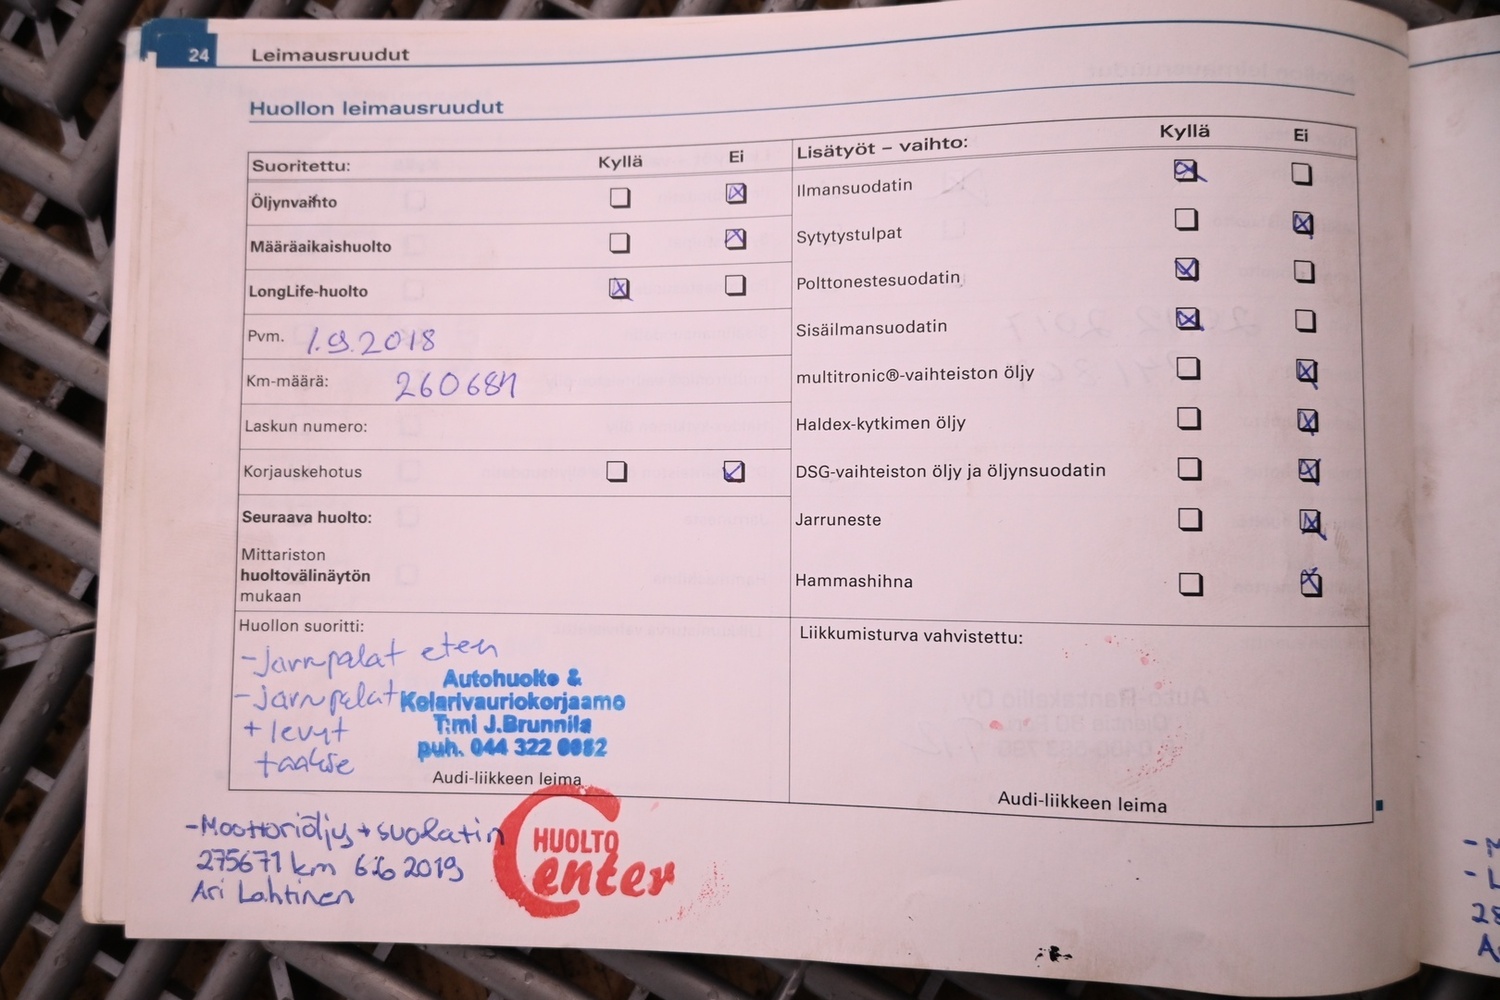 24 Leimausruudut
Huollon leimausruudut
Suoritettu: Kyllä Ei
Öljynvaihto
Määräaikaishuolto
LongLife-huolto
Pvm. 1.9.2018
Km-määrä: 260684
Laskun numero:
Korjauskehotus
Seuraava huolto:
Mittariston
huoltovälinäytön
mukaan
Huollon suoritti:
-jarrupalat eteen
-jarrupalat
+ levyt
taakse
Autohuolto &
Kolarivauriokorjaamo
T:mi J.Brunnila
puh. 044 322 0082
Audi-liikkeen leima
Lisätyöt – vaihto: Kyllä Ei
Ilmansuodatin
Sytytystulpat
Polttonestesuodatin
Sisäilmansuodatin
multitronic®-vaihteiston öljy
Haldex-kytkimen öljy
DSG-vaihteiston öljy ja öljynsuodatin
Jarruneste
Hammashihna
Liikkumisturva vahvistettu:
Audi-liikkeen leima
-Moottoriöljy + suodatin
275671 km 6.6 2019
Ari Lahtinen
HUOLTO
Center